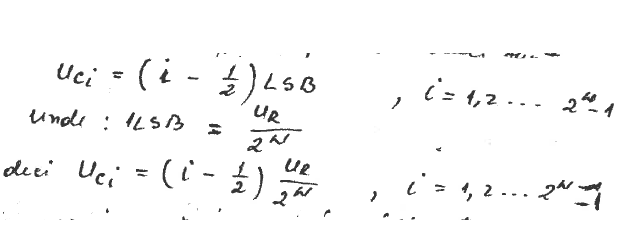 u_{ci} = (i - 1/2) LSB , i = 1,2 ... 2^N-1
unde : 1LSB = u_R/2^N
deci u_{ci} = (i - 1/2) u_R/2^N , i = 1,2 ... 2^N-1